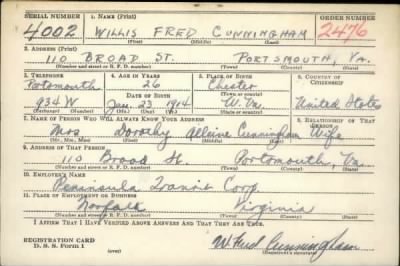 SERIAL NUMBER 1. NAME (Print) ORDER NUMBER
4002 WILLIS FRED CUNNINGHAM 2476
(First) (Middle) (Last)
2. ADDRESS (Print)
110 BROAD ST. PORTSMOUTH, VA.
(Number and street or R. F. D. number) (Town) (County) (State)
3. TELEPHONE 4. AGE IN YEARS 5. PLACE OF BIRTH 6. COUNTRY OF CITIZENSHIP
Portsmouth 26 Chester
DATE OF BIRTH (Town or county)
934 W Jan. 23 1914 W. Va. United States
(Exchange) (Number) (Mo.) (Day) (Yr.) (State or country)
7. NAME OF PERSON WHO WILL ALWAYS KNOW YOUR ADDRESS 8. RELATIONSHIP OF THAT PERSON
Mrs Dorothy Cunningham Wife
(Mr., Mrs., Miss) (First) (Middle) (Last)
9. ADDRESS OF THAT PERSON
110 Broad St. Portsmouth, Va.
(Number and street or R. F. D. number) (Town) (County) (State)
10. EMPLOYER'S NAME
Peninsula Transit Corp.
11. PLACE OF EMPLOYMENT OR BUSINESS
Norfolk Virginia
(Number and street or R. F. D. number) (Town) (County) (State)
I AFFIRM THAT I HAVE VERIFIED ABOVE ANSWERS AND THAT THEY ARE TRUE.
REGISTRATION CARD
D. S. S. Form 1 (over) W Fred Cunningham
(Registrant's signature)